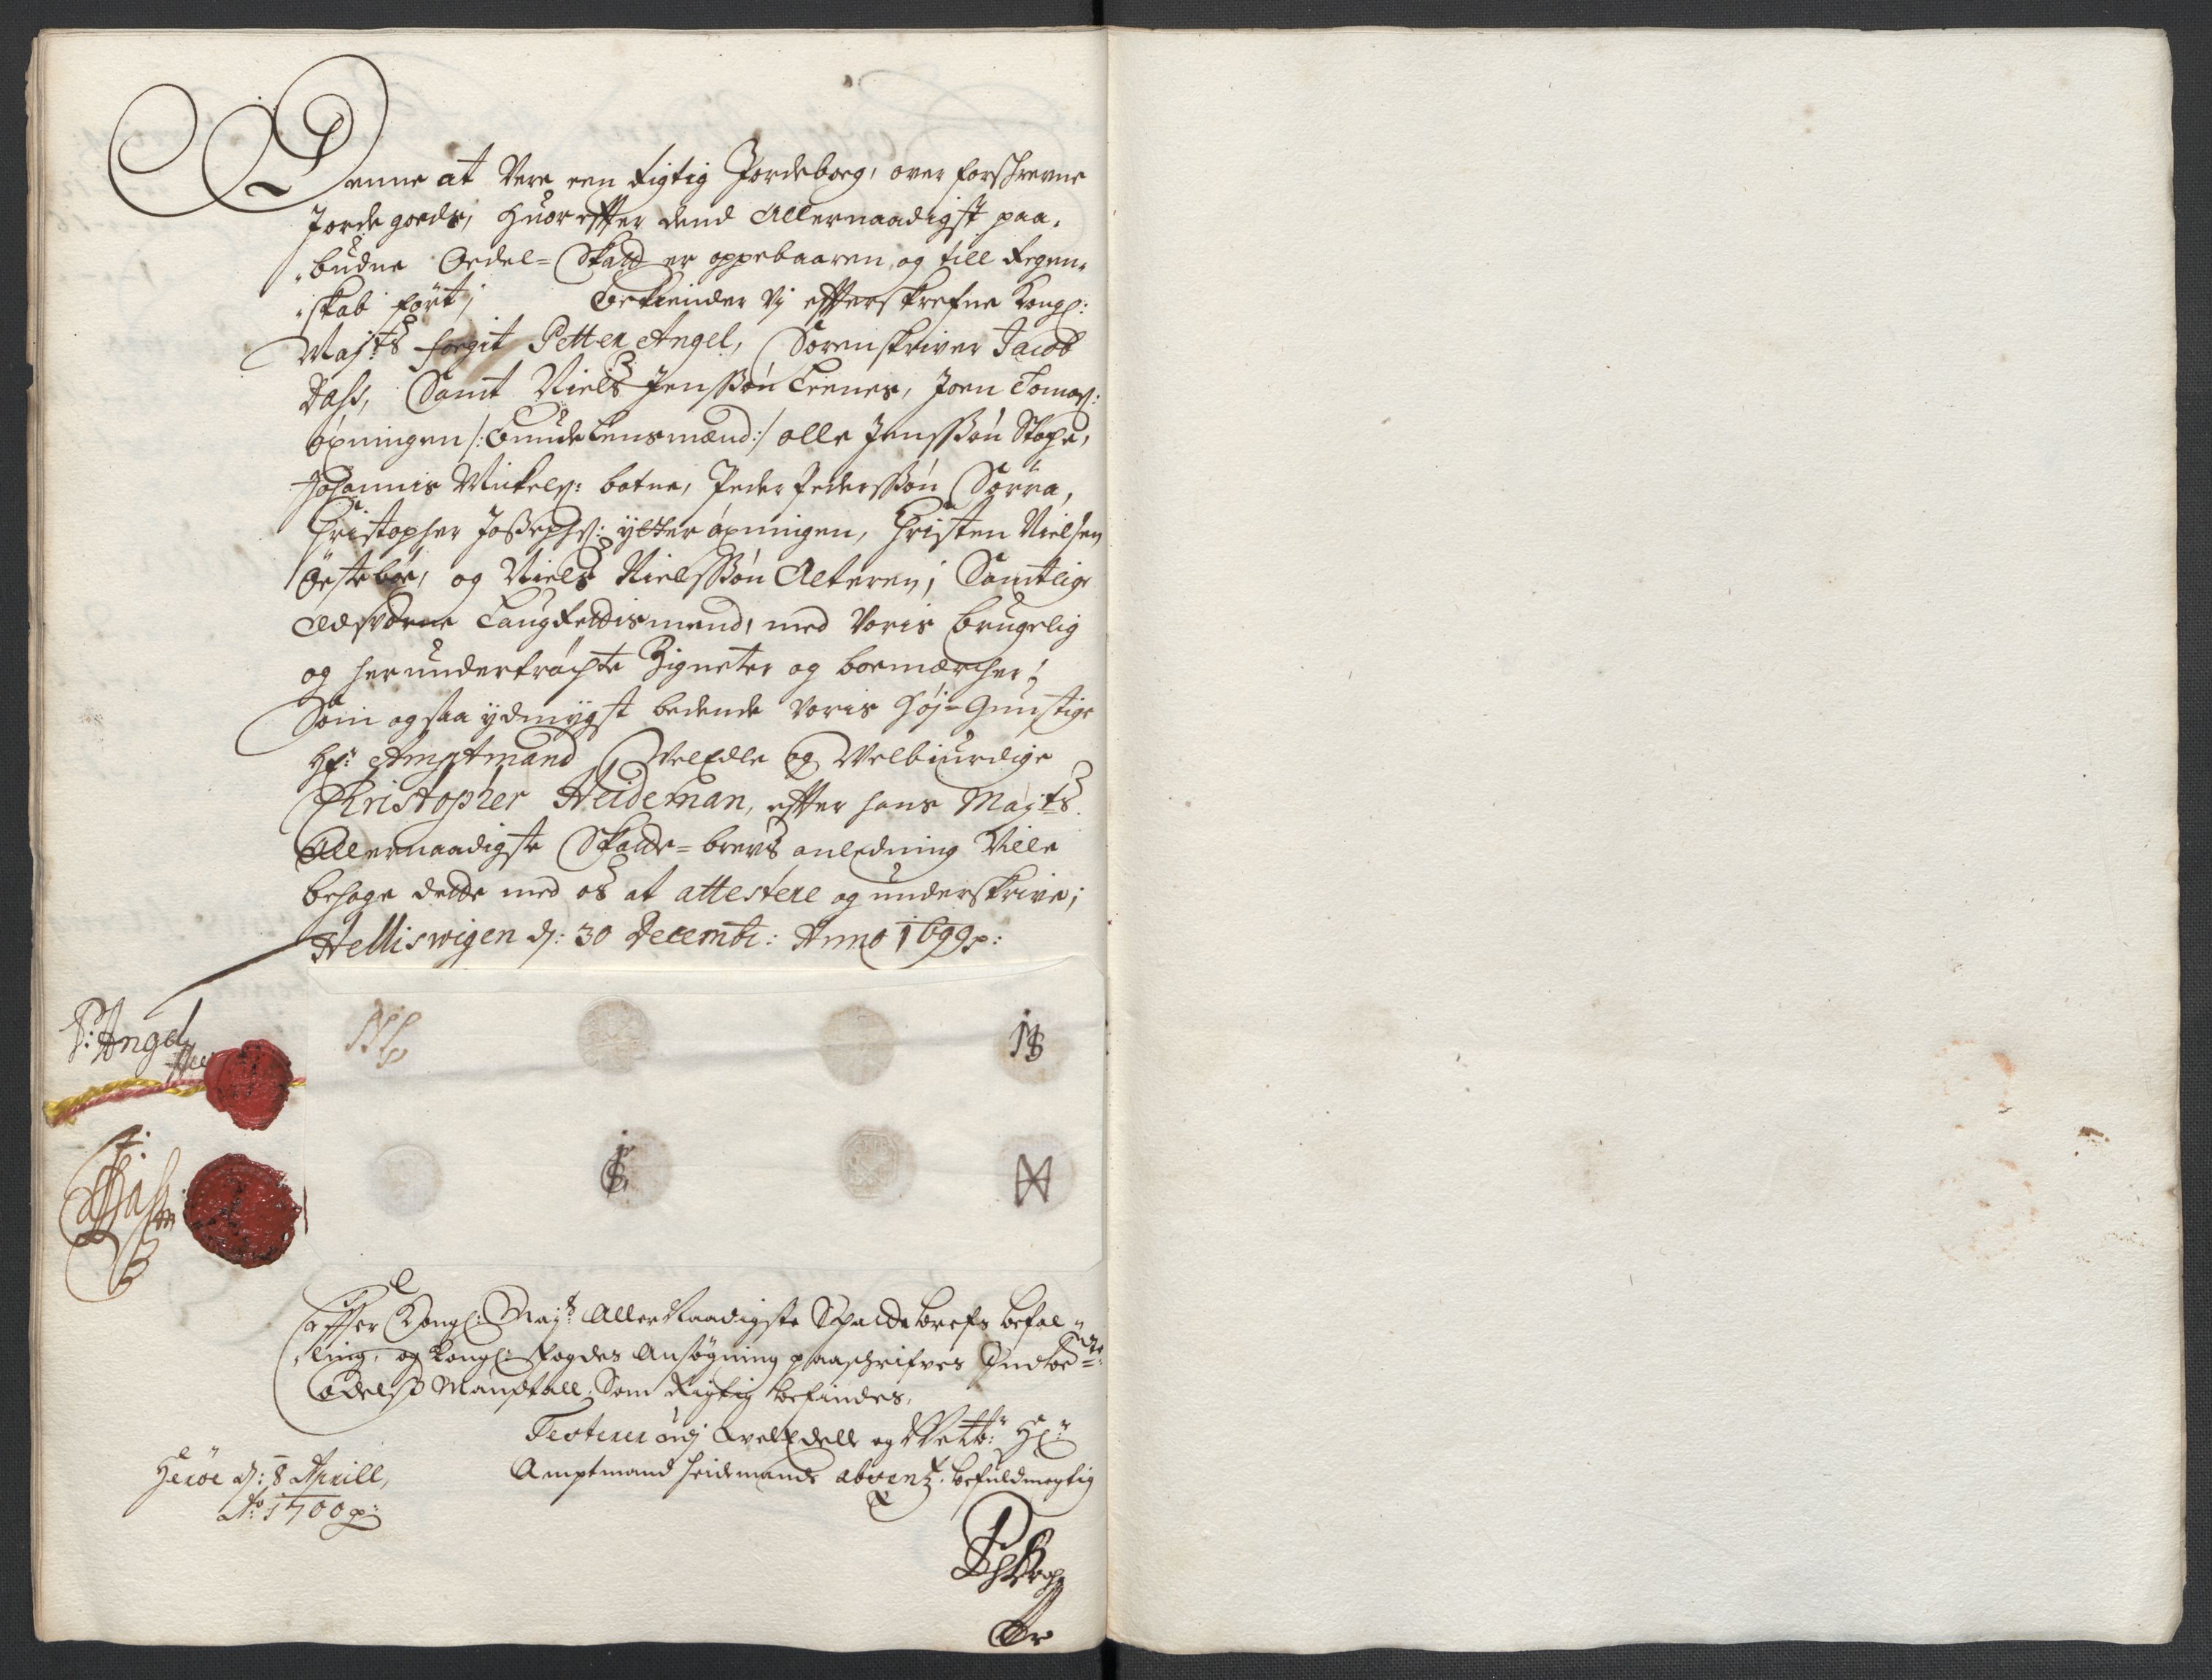 Denne at Vere een Rigtig Jordeboeg, over forschrevne
Jorde goeds, Huor effter dend Allernaadigst paa,
budne Oedel= Skatt er oppebaaren, og till Regen,
skab fört; Bekiender Vj effterskrefne Kongl:
Maj:ts foegit Petter Angel, Sorenskriver Jacob
Dass, Samt Niels Jenssøn Leenes, Joen Tomæs:
öxningen /: Bunde Lensmænd :/ olle Jenssøn
Johannis Mickels: botne, Peder Pederssøn Sörra,
Christopher Joseph: ytter öxningen, Christen Nielsen
og Niels Nielssøn Alteren; Samtlige
Edsvorne Laugrettismend, med Voris brugelig
og herundertröchte Zigneter og boemærcher;
Som ogsaa ydmygst bedende Voris Høj=Gunstige
Hr: Amptmand VelEdle og Welbiurdige
Christopher Heideman, effter hans Maj:ts
Allernaadigste Skatte=brevs anledning Ville
behage dette med os at attestere og underskrive;
Helliswigen d: 30 Decembr: Anno 1699 p:
P: Angel
NI
IS
Effter Kongl: Maj:ts AllerNaadigste Schatte brefs befal,
ling, og Kongl: fogdes Ansøgning paaschrifves
Odels Mandtall, Som Rigtig befindes,
Testerer udj WelEdelle og Velb: Hr:
Amptmand Heidemands absentz. befuldmegtig
Heröe d: 8 Aprill,
Ao: 1700 p: